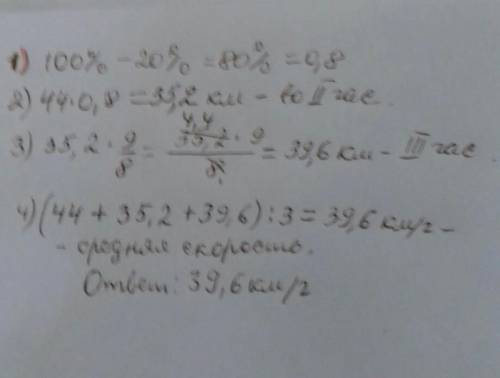 1) 100% - 20% = 80% = 0,8
2) 44·0,8 = 35,2 км - во II час.
3) 35,2 · 9/8 = 4,4 35,2 · 9 / 8 = 39,6 км - III час.
4) (44 + 35,2 + 39,6) : 3 = 39,6 км/ч -
- средняя скорость.
Ответ: 39,6 км/ч